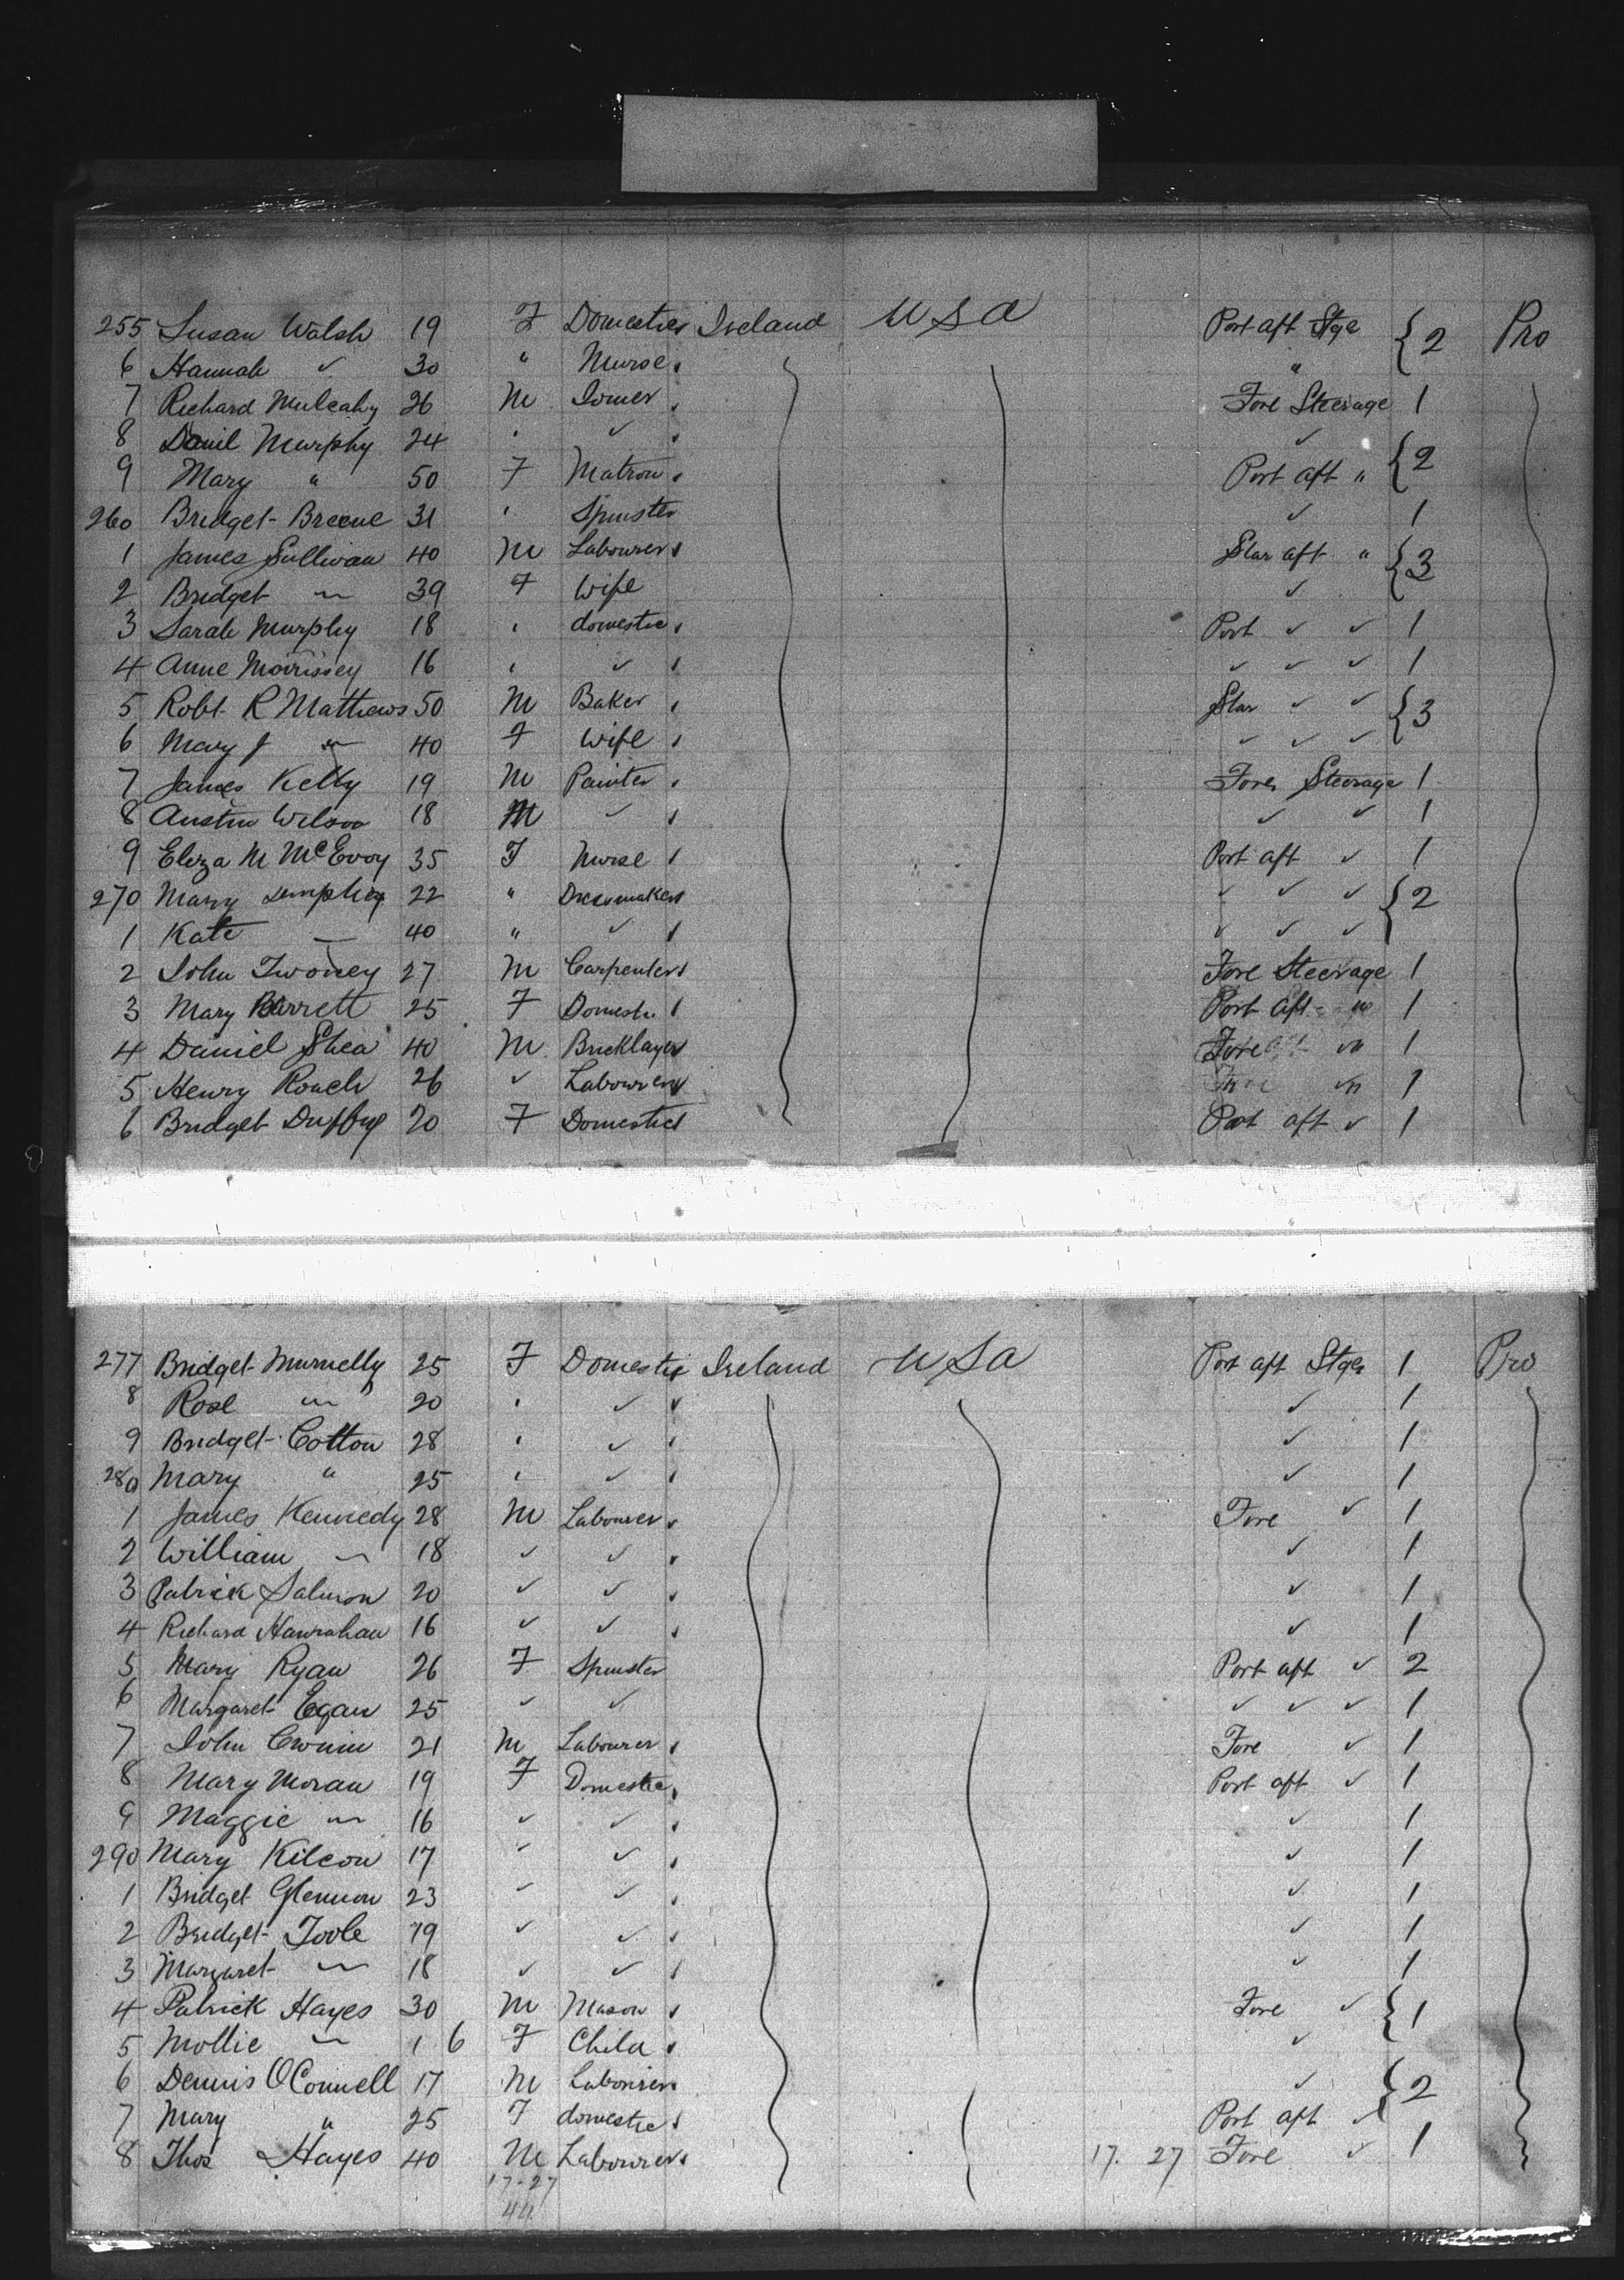 255 Susan Walsh 19 F Domestic Ireland USA Port aft Stge { 2 Pro
6 Hannah ✓ 30 " Nurse "
7 Richard Mulcahy 26 M Joiner Fore Steerage 1
8 Daniel Murphy 24 ✓ ✓ { 2
9 Mary " 50 F Matron Port aft "
260 Bridget Breene 31 Spinster ✓ 1
1 James Sullivan 40 M Labourer Star aft " { 3
2 Bridget " 39 F Wife ✓
3 Sarah Murphy 18 domestic Port ✓ ✓ 1
4 Anne Morrissey 16 ✓ ✓ ✓ ✓ 1
5 Robt R Mathews 50 M Baker Star ✓ ✓ { 3
6 Mary J " 40 F Wife ✓ ✓ ✓
7 James Kelly 19 M Painter Fore Steerage 1
8 Austin Wilson 18 M ✓ ✓ ✓ 1
9 Eliza M McEvoy 35 F Nurse Port aft ✓ 1
270 Mary 22 " Dressmaker ✓ ✓ ✓ { 2
1 Kate — 40 " ✓ ✓ ✓ ✓
2 John Twomey 27 M Carpenter Fore Steerage 1
3 Mary Barrett 25 F Domestic Port aft " 1
4 Daniel Shea 40 M Bricklayer Fore " 1
5 Henry Roach 26 ✓ Labourer " 1
6 Bridget Duffy 20 F Domestic Port aft ✓ 1
277 Bridget Murnelly 25 F Domestic Ireland USA Port aft Stge 1 Pro
8 Rose " 20 ✓ ✓ 1
9 Bridget Cotton 28 ✓ ✓ 1
280 Mary " 25 ✓ ✓ 1
1 James Kennedy 28 M Labourer Fore ✓ 1
2 William " 18 ✓ ✓ ✓ 1
3 Patrick Salmon 20 ✓ ✓ ✓ 1
4 Richard Hanrahan 16 ✓ ✓ ✓ 1
5 Mary Ryan 26 F Spinster Port aft ✓ 2
6 Margaret Egan 25 ✓ ✓ ✓ ✓ ✓ 1
7 John Cronin 21 M Labourer Fore ✓ 1
8 Mary Moran 19 F Domestic Port aft ✓ 1
9 Maggie " 16 ✓ ✓ ✓ 1
290 Mary Kilcon 17 ✓ ✓ ✓ 1
1 Bridget Glennon 23 ✓ ✓ ✓ 1
2 Bridget Toole 19 ✓ ✓ ✓ 1
3 Margaret " 18 ✓ ✓ ✓ 1
4 Patrick Hayes 30 M Mason Fore ✓ { 1
5 Mollie " 1 6 F Child ✓
6 Dennis OConnell 17 M Labourer ✓ { 2
7 Mary " 25 F domestic Port aft ✓
8 Thos Hayes 40 M Labourer 17. 27 Fore ✓ 1
17-27
44